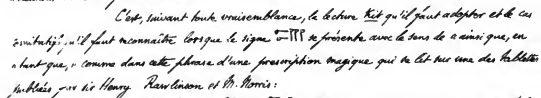 C'est, suivant toute vraisemblance, la lecture Kit qu'il faut adopter et le cas
qu'il faut reconnaître lorsque le signe se présente avec le sens de « ainsi que, en
tant que, » comme dans cette phrase d'une prescription magique qui se lit sur une des tablettes
publiées par sir Henry Rawlinson et M. Norris :